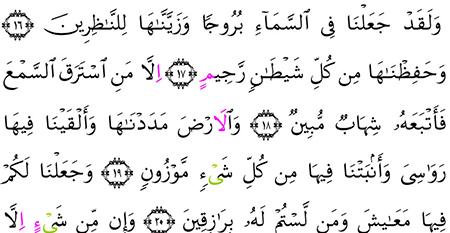 وَلَقَدْ جَعَلْنَا فِى السَّمَآءِ بُرُوجًا وَزَيَّنَّٰهَا لِلنَّٰظِرِينَ ١٦
وَحَفِظْنَٰهَا مِن كُلِّ شَيْطَٰنٍ رَّجِيمٍ ١٧ اِلَّا مَنِ اسْتَرَقَ السَّمْعَ
فَأَتْبَعَهُۥ شِهَابٌ مُّبِينٌ ١٨ وَالَارْضَ مَدَدْنَٰهَا وَأَلْقَيْنَا فِيهَا
رَوَٰسِىَ وَأَنۢبَتْنَا فِيهَا مِن كُلِّ شَىْءٍ مَّوْزُونٍ ١٩ وَجَعَلْنَا لَكُمْ
فِيهَا مَعَٰيِشَ وَمَن لَّسْتُمْ لَهُۥ بِرَٰزِقِينَ ٢٠ وَإِن مِّن شَىْءٍ اِلَّا